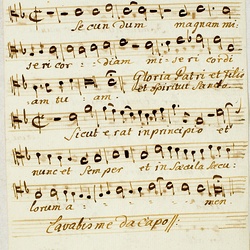 Secundum magnam mi:
sericor : : diam mi: sericordi
am tu : am. Gloria Patri et filio
et spiritui Sancto.
Sicut erat in principio et
nunc et semper et in sæcula sæcu:
lorum a : : men
Lavabis me da capo //: